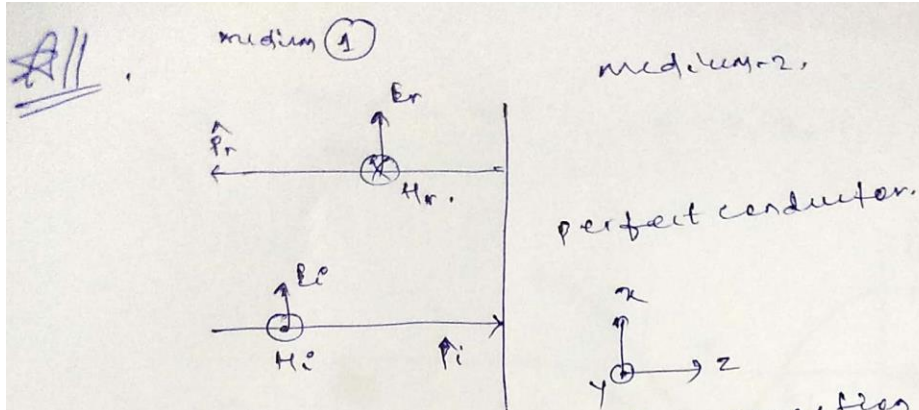 All.
medium ①
medium-2.
Er
P̂r
Hr.
perfect conductor.
Ei
Hi
P̂i
x
y
z